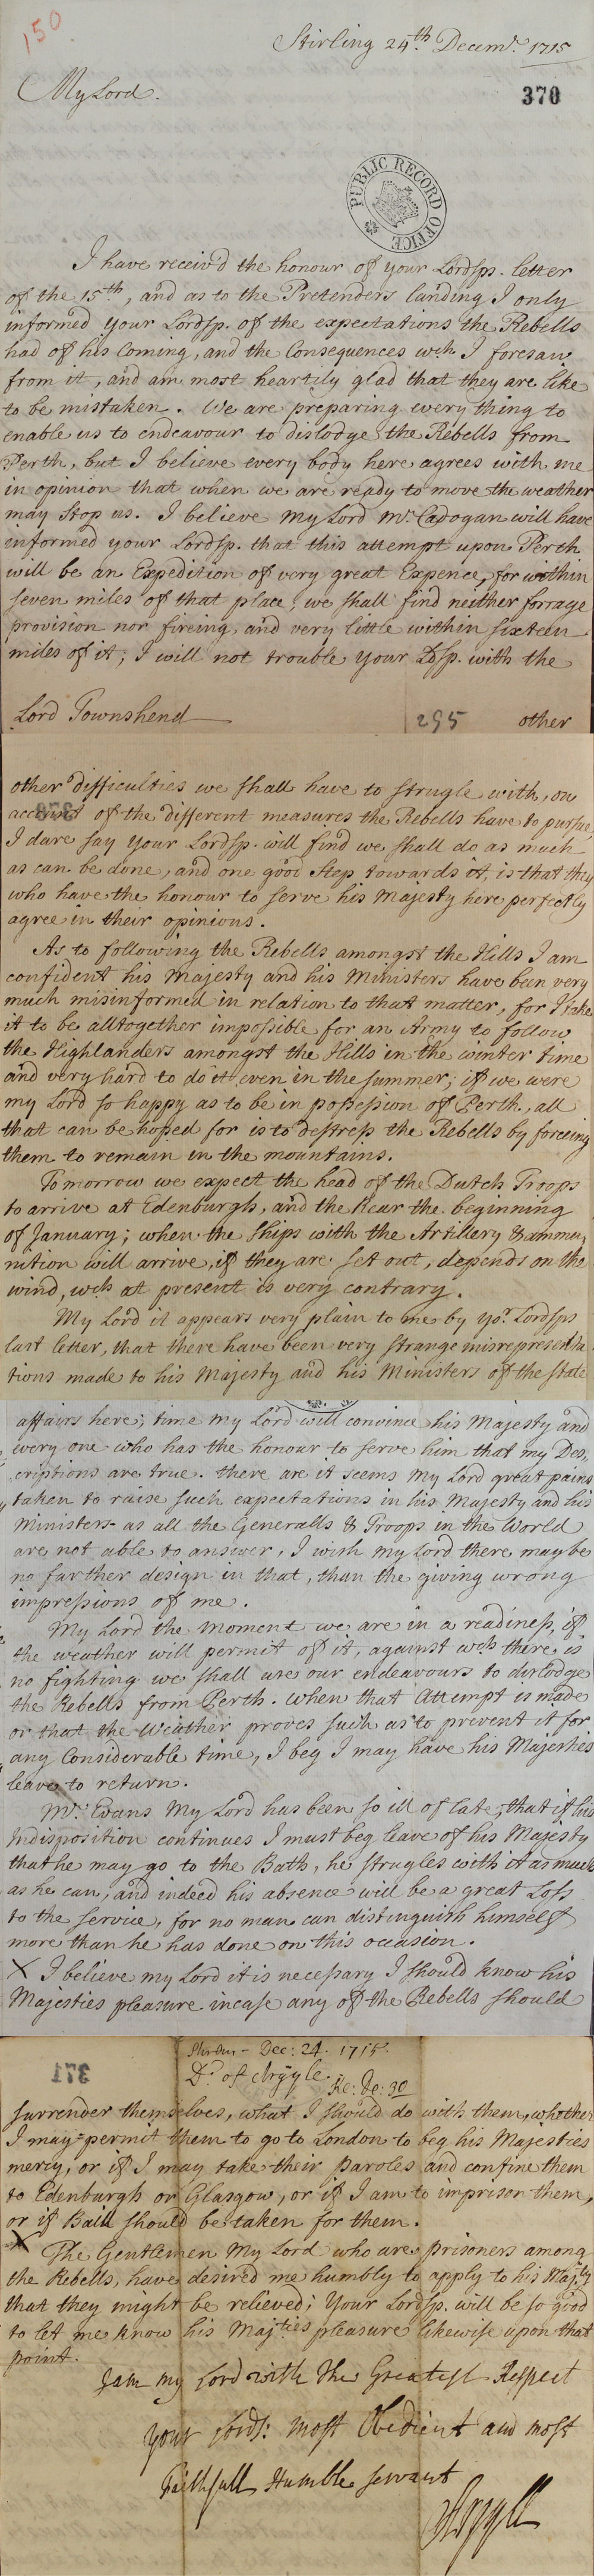 150
Stirling 24th. Decemr. 1715
370
My Lord.
PUBLIC RECORD OFFICE
I have receiv'd the honour of your Lordsps. letter
of the 15th, and as to the Pretenders landing I only
informed your Lordsp. of the expectations the Rebells
had of his Coming, and the Consequences wch I foresaw
from it, and am most heartily glad that they are like
to be mistaken. We are preparing every thing to
enable us to endeavour to dislodge the Rebells from
Perth, but I believe every body here agrees with me
in opinion that when we are ready to move the weather
may stop us. I believe My Lord Mr. Cadogan will have
informed your Lordsp. that this attempt upon Perth
will be an Expedition of very great Expence, for within
seven miles of that place, we shall find neither forrage
provision nor fireing, and very little within sixteen
miles of it; I will not trouble your Ldsp. with the
Lord Townshend 295 other
other difficulties we shall have to strugle with, on
account of the different measures the Rebells have to pursue,
I dare say your Lordsp. will find we shall do as much
as can be done, and one good step towards it, is that they
who have the honour to serve his Majesty here perfectly
agree in their opinions.
As to following the Rebells amongst the Hills I am
confident his Majesty and his Ministers have been very
much misinformed in relation to that matter, for I take
it to be alltogether impossible for an Army to follow
the Highlanders amongst the Hills in the winter time
and very hard to do it even in the summer; if we were
my Lord so happy as to be in possession of Perth, all
that can be hoped for is to destress the Rebells by forceing
them to remain in the mountains.
Tomorrow we expect the head of the Dutch Troops
to arrive at Edenburgh, and the Rear the beginning
of January; when the ships with the Artillery & ammu,
nition will arrive, if they are set out, depends on the
wind, wch at present is very contrary.
My Lord it appears very plain to me by yor. Lordsps
last letter, that there have been very strange misrepresenta
tions made to his Majesty and his Ministers of the state
affairs here; time my Lord will convince his Majesty and
every one who has the honour to serve him that my Des,
criptions are true. there are it seems My Lord great pains
taken to raise such expectations in his Majesty and his
Ministers as all the Generalls & Troops in the World
are not able to answer, I wish my Lord there may be
no farther design in that, than the giving wrong
impressions of me.
My Lord the moment we are in a readiness, if
the weather will permit of it, against wch there is
no fighting we shall use our endeavours to dislodge
the Rebells from Perth. when that Attempt is made
or that the Weather proves such as to prevent it for
any Considerable time, I beg I may have his Majesties
leave to return.
Mr. Evans My Lord has been so ill of late, that if his
Indisposition continues I must beg leave of his Majesty
that he may go to the Bath, he strugles with it as much
as he can, and indeed his absence will be a great Loss
to the service, for no man can distinguish himself
more than he has done on this occasion.
X I believe my Lord it is necessary I should know his
Majesties pleasure incase any of the Rebells should
Dec: 24. 1715.
D. of Argyle.
Re: De: 30
371
surrender themselves, what I should do with them, whether
I may permit them to go to London to beg his Majesties
mercy, or if I may take their paroles and confine them
to Edenburgh or Glasgow, or if I am to imprison them,
or if Baill should be taken for them.
X The Gentlemen My Lord who are prisoners among
the Rebells, have desired me humbly to apply to his Majty
that they might be relieved; Your Lordsp. will be so good
to let me know his Majties pleasure likewise upon that
point.
I am my Lord with the Greatest Respect
your Lords: most Obedient and most
Faithfull Humble servant
Argyll